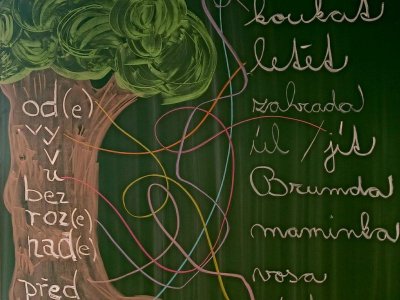 od(e)
vy
v
u
bez
roz(e)
nad(e)
před
koukat
letět
zahrada
úl / jít
Brumda
maminka
vosa